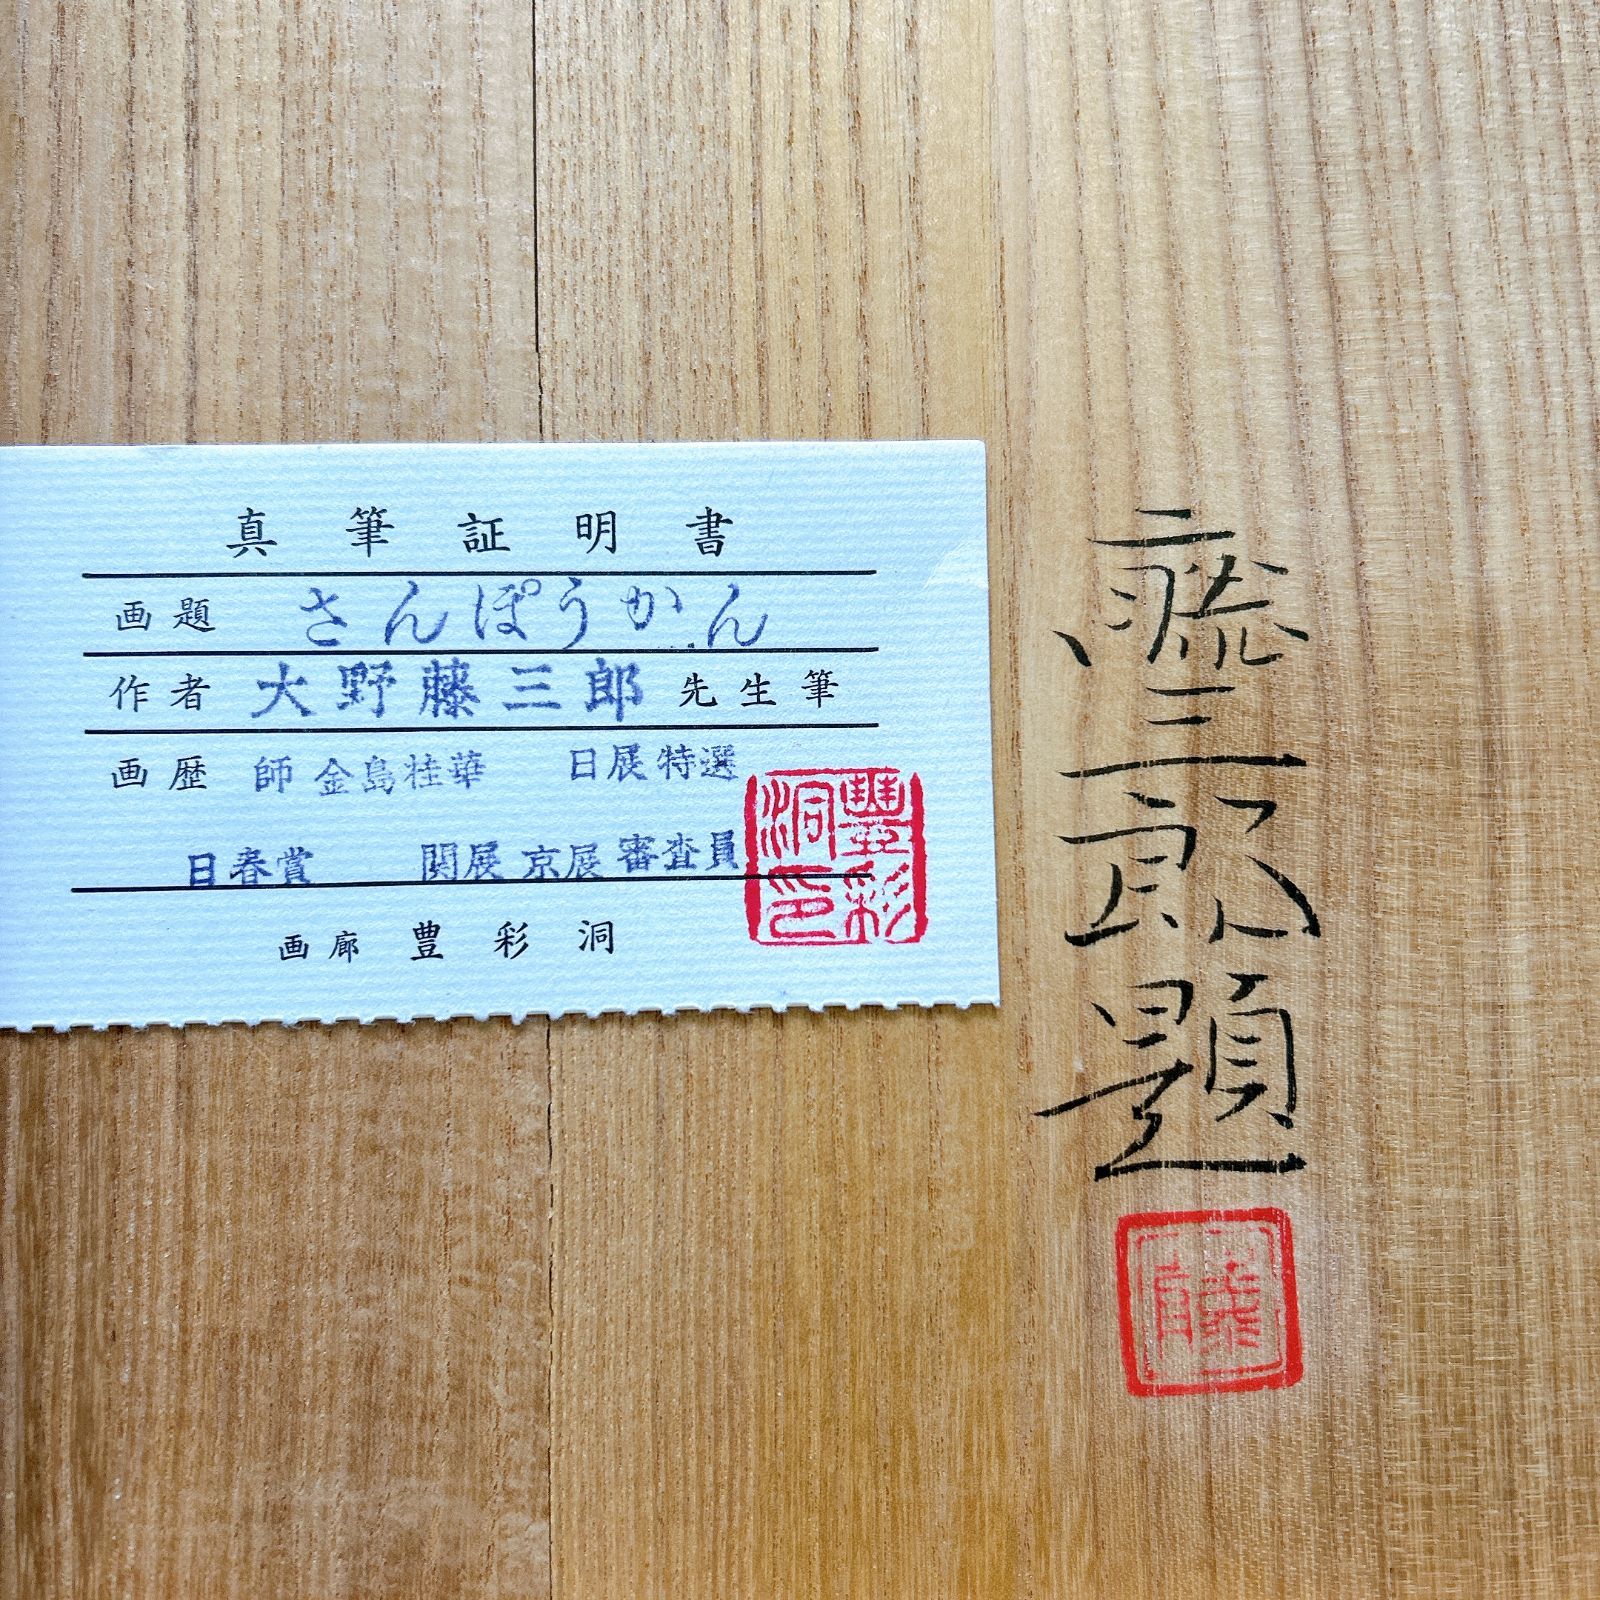 真筆証明書
画題 さんぽうかん
作者 大野藤三郎 先生筆
画歴 師 金島桂華 日展特選
日春賞 関展 京展 審査員
画廊 豊彩洞
豊彩洞印
藤三郎題